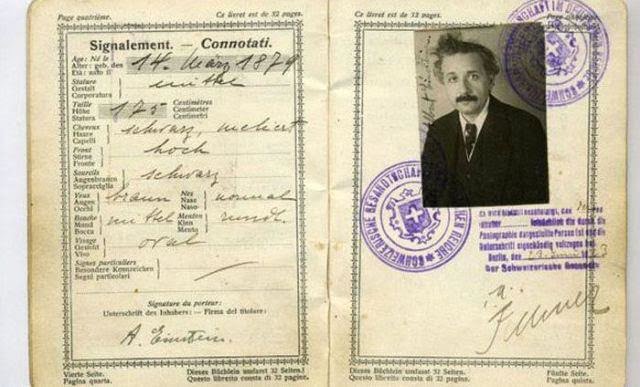 Page quatrième.
Ce livret est de 32 pages.
Signalement. — Connotati.
Age: Né le
Alter: geb. den
Età: nato il
14. März 1879
Stature
Gestalt
Corporatura
mittel
Taille
Höhe
Statura
175
Centimètres
Centimeter
Centimetri
Cheveux
Haare
Capelli
schwarz, meliert
Front
Stirne
Fronte
hoch
Sourcils
Augenbrauen
Sopracciglia
schwarz
Yeux
Augen
Occhi
braun
Nez
Nase
Naso
normal
Bouche
Mund
Bocca
mittel
Menton
Kinn
Mento
rund
Visage
Gesicht
Viso
oval
Signes particuliers
Besondere Kennzeichen
Segni particolari
Signature du porteur:
Unterschrift des Inhabers: — Firma del titolare:
A. Einstein.
Vierte Seite.
Pagina quarta.
Dieses Büchlein umfasst 32 Seiten.
Questo libretto consta di 32 pagine.
Page cinquième.
Ce livret est de 32 pages.
SCHWEIZERISCHE GESANDTSCHAFT
DEUTSCHEN REICHE
Es wird hiermit bescheinigt, dass
die durch die
Photographie dargestellte Person ist und die
Unterschrift eigenhändig vollzogen hat.
Berlin, den
Der Schweizerische Gesandte
i. A.
Dieses Büchlein umfasst 32 Seiten.
Questo libretto consta di 32 pagine.
Fünfte Seite.
Pagina quinta.